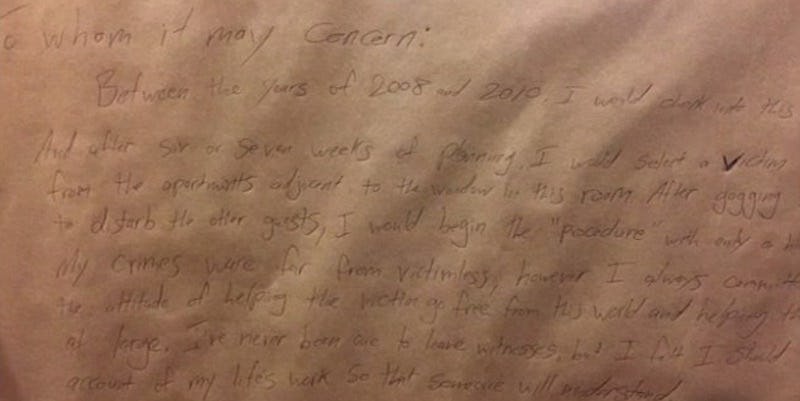 To whom it may concern:
Between the years of 2008 and 2010, I would check into this
And after six or seven weeks of planning, I would select a victim
from the apartments adjacent to the window in this room. After gagging
to disturb the other guests, I would begin the "procedure" with only a
My crimes were far from victimless, however I always
the attitude of helping the victim go free from this world and helping
at large. I've never been one to leave witnesses, but I felt I should
account of my life's work so that someone will understand